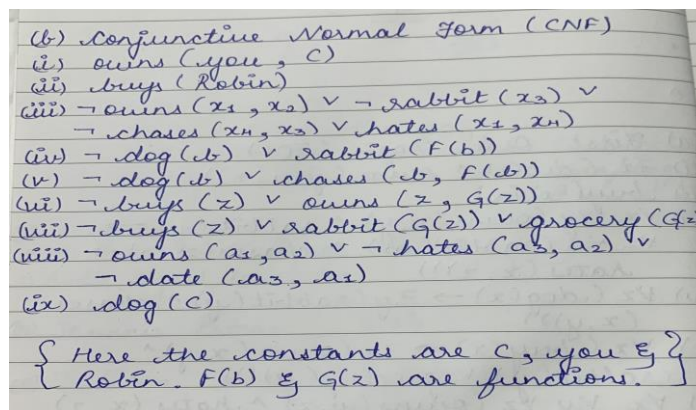 (b) Conjunctive Normal Form (CNF)
(i) owns (you, C)
(ii) buys (Robin)
(iii) ¬ owns (x1, x2) ∨ ¬ rabbit (x3) ∨
¬ chases (x4, x3) ∨ hates (x1, x4)
(iv) ¬ dog (b) ∨ rabbit (F(b))
(v) ¬ dog (b) ∨ chases (b, F(b))
(vi) ¬ buys (z) ∨ owns (z, G(z))
(vii) ¬ buys (z) ∨ rabbit (G(z)) ∨ grocery (G(z
(viii) ¬ owns (a1, a2) ∨ ¬ hates (a3, a2) ∨
¬ date (a3, a1)
(ix) dog (C)
{ Here the constants are C, you & }
{ Robin. F(b) & G(z) are functions. }